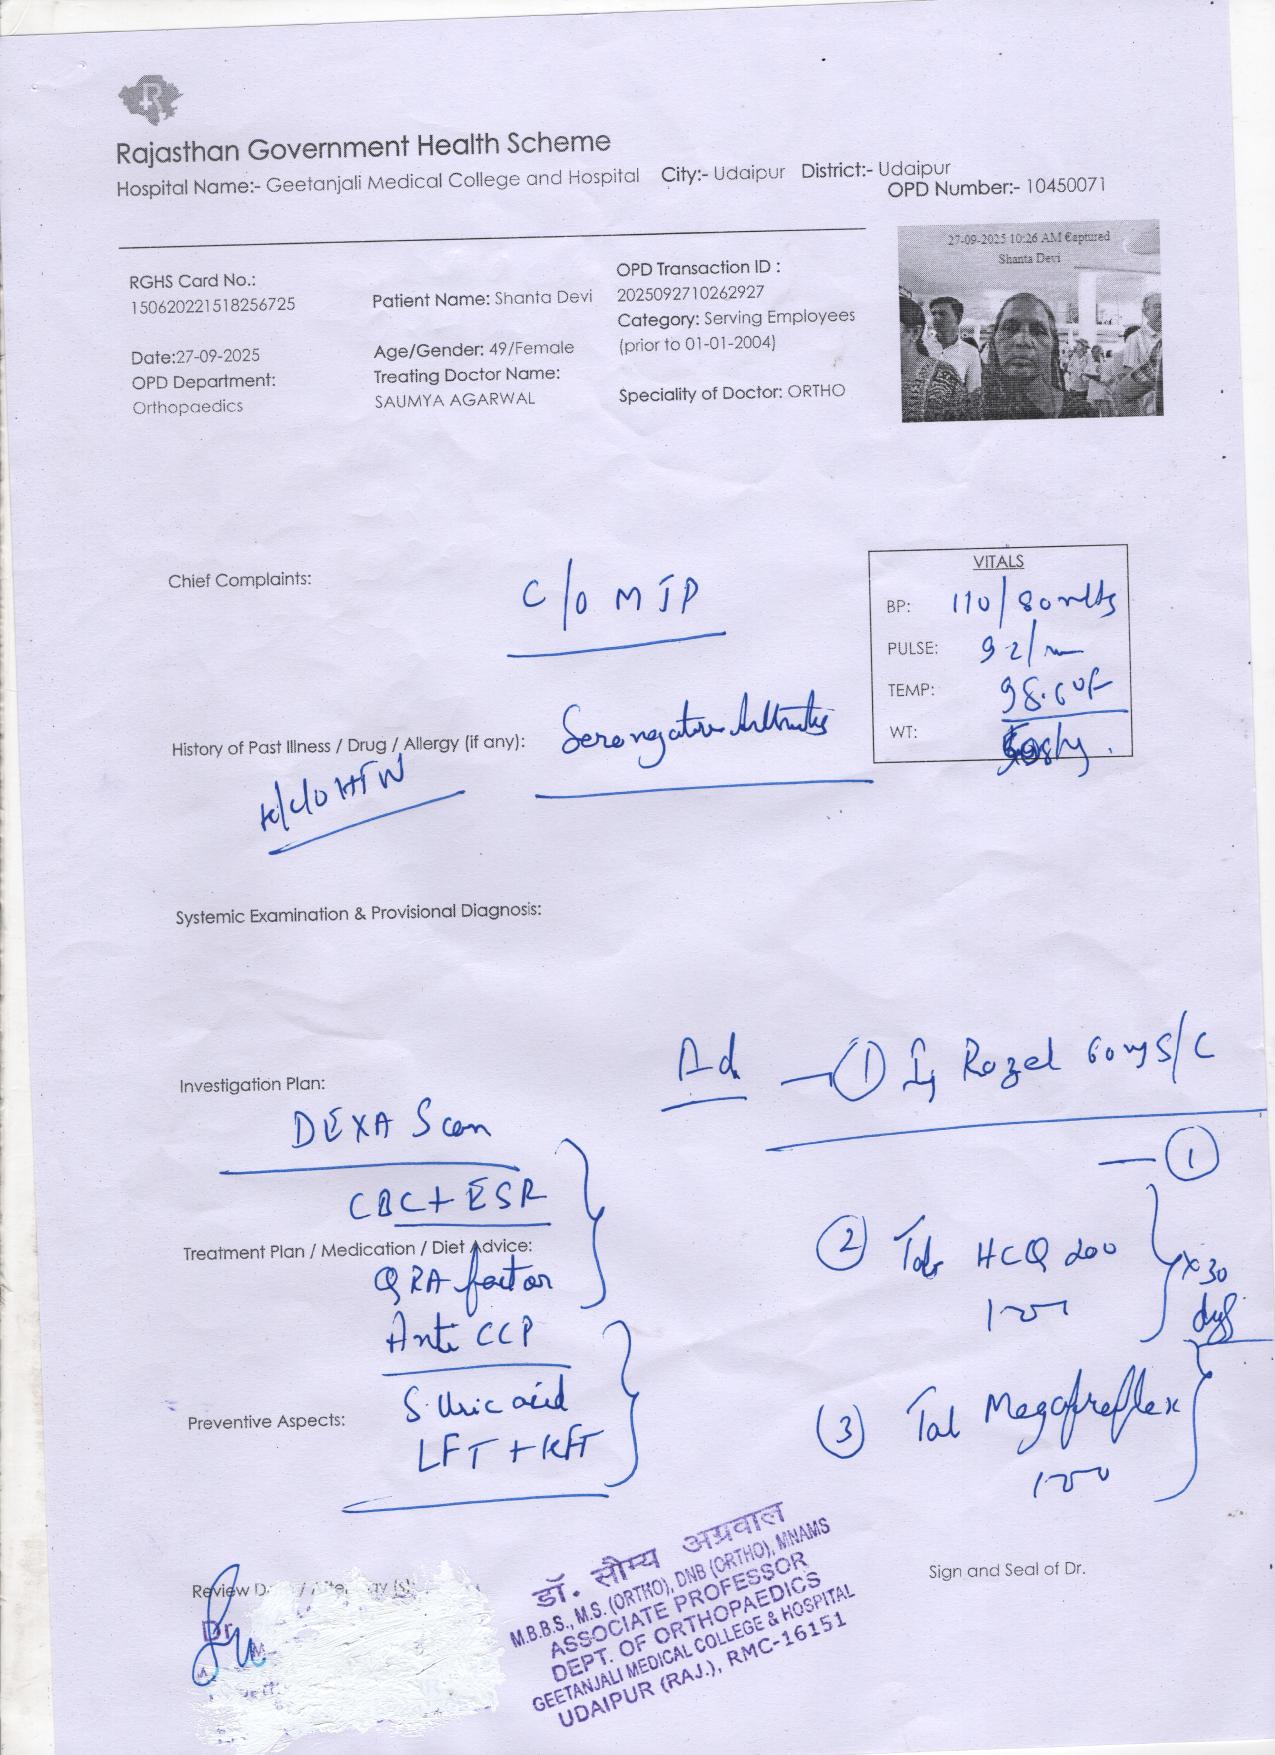 Rajasthan Government Health Scheme
Hospital Name:- Geetanjali Medical College and Hospital City:- Udaipur District:- Udaipur
OPD Number:- 10450071
27-09-2025 10:26 AM Captured
Shanta Devi
RGHS Card No.:
150620221518256725
Patient Name: Shanta Devi
OPD Transaction ID :
2025092710262927
Category: Serving Employees
(prior to 01-01-2004)
Date:27-09-2025
OPD Department:
Orthopaedics
Age/Gender: 49/Female
Treating Doctor Name:
SAUMYA AGARWAL
Speciality of Doctor: ORTHO
Chief Complaints:
C/o MJP
VITALS
BP: 110/80
PULSE: 92/m
TEMP: 98.6°F
WT:
History of Past Illness / Drug / Allergy (if any):
K/C/O HTN
Systemic Examination & Provisional Diagnosis:
Ad
1 Inj Rozel 60mg S/C
1
Investigation Plan:
DEXA Scan
CBC + ESR
Treatment Plan / Medication / Diet Advice:
QRA factor
Anti CCP
2 Tab HCQ 200
x 30
days
Preventive Aspects:
S. Uric acid
LFT + KFT
3 Tab
Review
Dr.
Sign and Seal of Dr.
डॉ. सौम्य अग्रवाल
M.B.B.S., M.S. (ORTHO), DNB (ORTHO), MNAMS
ASSOCIATE PROFESSOR
DEPT. OF ORTHOPAEDICS
GEETANJALI MEDICAL COLLEGE & HOSPITAL
UDAIPUR (RAJ.), RMC-16151